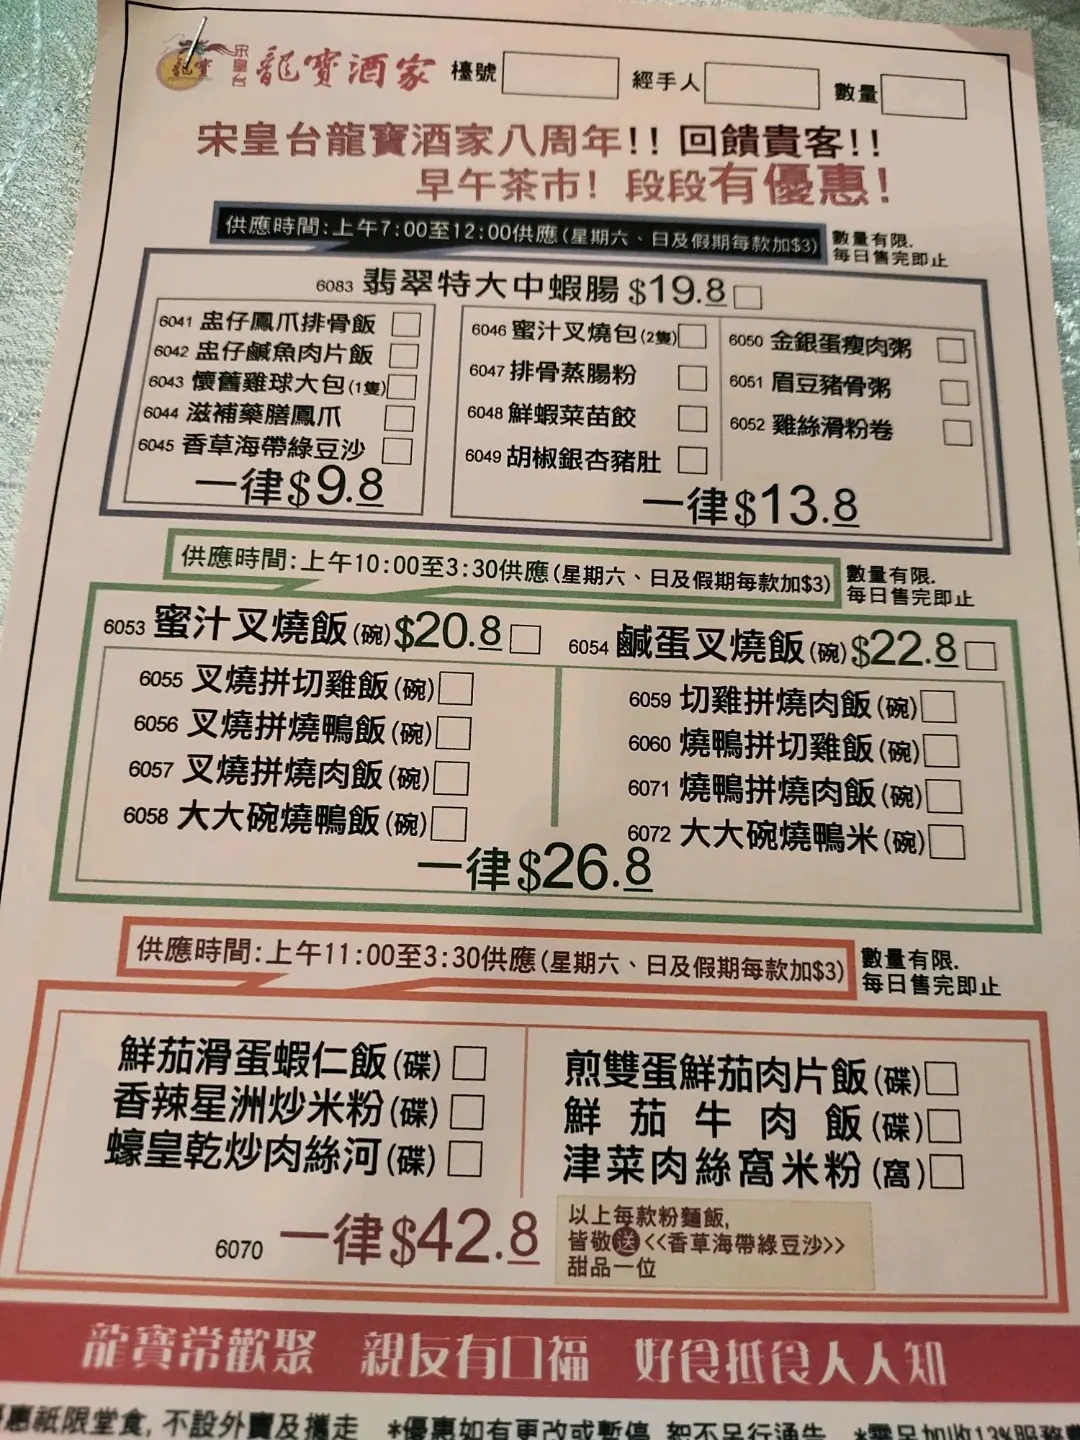 宋皇台 龍寶酒家 檯號 經手人 數量
宋皇台龍寶酒家八周年!! 回饋貴客!!
早午茶市! 段段有優惠!
供應時間:上午7:00至12:00供應(星期六、日及假期每款加$3)
數量有限.
每日售完即止
6083 翡翠特大中蝦腸 $19.8
6041 盅仔鳳爪排骨飯
6042 盅仔鹹魚肉片飯
6043 懷舊雞球大包(1隻)
6044 滋補藥膳鳳爪
6045 香草海帶綠豆沙
一律$9.8
6046 蜜汁叉燒包(2隻)
6047 排骨蒸腸粉
6048 鮮蝦菜苗餃
6049 胡椒銀杏豬肚
6050 金銀蛋瘦肉粥
6051 眉豆豬骨粥
6052 雞絲滑粉卷
一律$13.8
供應時間:上午10:00至3:30供應(星期六、日及假期每款加$3)
數量有限.
每日售完即止
6053 蜜汁叉燒飯(碗)$20.8
6054 鹹蛋叉燒飯(碗)$22.8
6055 叉燒拼切雞飯(碗)
6056 叉燒拼燒鴨飯(碗)
6057 叉燒拼燒肉飯(碗)
6058 大大碗燒鴨飯(碗)
6059 切雞拼燒肉飯(碗)
6060 燒鴨拼切雞飯(碗)
6071 燒鴨拼燒肉飯(碗)
6072 大大碗燒鴨米(碗)
一律$26.8
供應時間:上午11:00至3:30供應(星期六、日及假期每款加$3)
數量有限.
每日售完即止
鮮茄滑蛋蝦仁飯(碟)
香辣星洲炒米粉(碟)
蠔皇乾炒肉絲河(碟)
煎雙蛋鮮茄肉片飯(碟)
鮮茄牛肉飯(碟)
津菜肉絲窩米粉(窩)
6070 一律$42.8
以上每款粉麵飯,
皆敬送<<香草海帶綠豆沙>>
甜品一位
龍寶常歡聚 親友有口福 好食抵食人人知
惠祇限堂食,不設外賣及攜走 *優惠如有更改或暫停,恕不另行通告